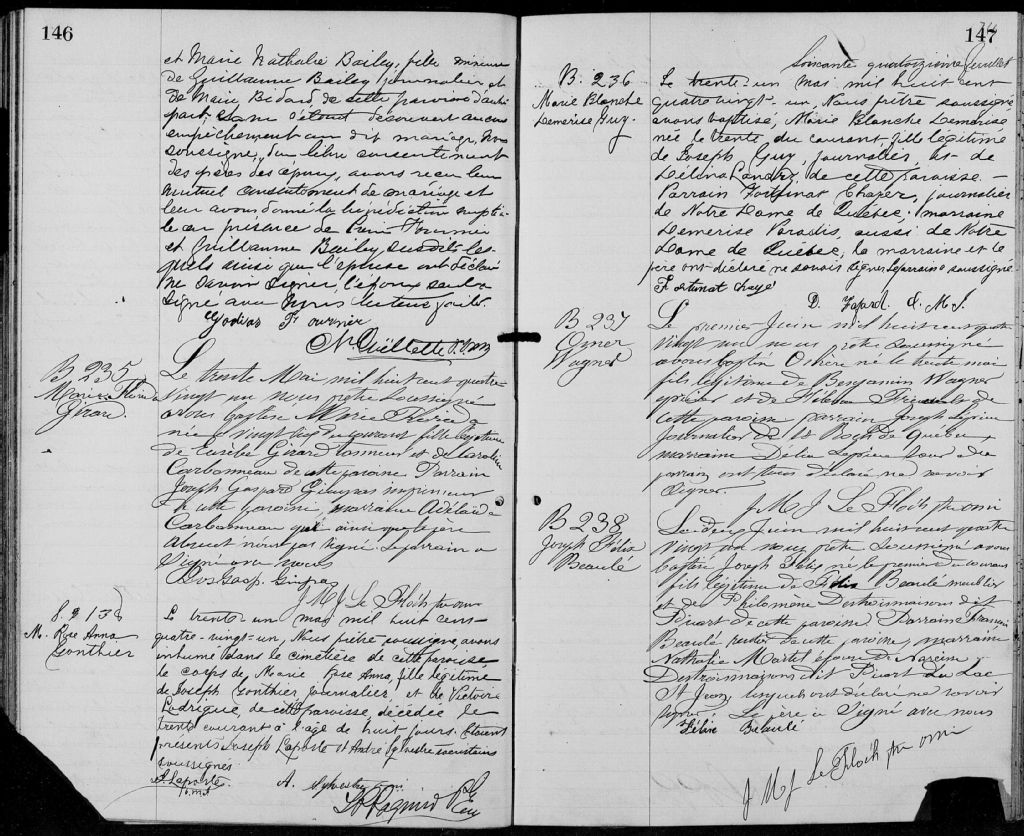 146
et Marie Nathalie Bailey, fille mineure
de Guillaume Bailey journalier, et
de Marie Bédard, de cette paroisse d'autre
part, sans s'être découvert aucun
empêchement au dit mariage, Nous
soussigné, du libre consentement
des pères des époux, avons reçu leur
mutuel consentement de mariage et
leur avons donné la bénédiction nuptia-
le en présence de Fournier
et Guillaume Bailey, susdits les-
quels ainsi que l'épouse ont déclaré
ne savoir signer, l'époux seul a
signé avec nous lecture faite.
Fournier
Ouellette
B 235
Marie
Girard
Le trente Mai mil huit cent quatre-
vingt un nous prêtre soussigné
avons baptisé Marie
née le vingt du courant fille légitime
de Eusèbe Girard et de Caroline
Carbonneau de cette paroisse Parrain
Joseph Gaspard Gingras imprimeur
de cette paroisse, marraine Adélaïde
Carbonneau qui ainsi que le père
absent n'ont pas signé. Le parrain a
signé avec nous
Jos Gasp. Gingras
J M J Le Floch ptre omi
S
M. Rose Anna
Gonthier
Le trente un mai mil huit cent-
quatre-vingt-un, Nous prêtre soussigné, avons
inhumé dans le cimetière de cette paroisse
le corps de Marie Rose Anna, fille légitime
de Joseph Gonthier, journalier et de Victoire
Rodrigue, de cette paroisse, décédée le
trente courant à l'âge de huit jours. Etaient
présents Joseph Laporte et André Sylvestre
soussignés
J. Laporte
o.m.i.
A. Sylvestre
147
Soixante quatorzième feuillet
B. 236
Marie Blanche
Demerise Guy.
Le trente-un mai mil huit cent
quatre vingt-un, Nous prêtre soussigné
avons baptisé, Marie Blanche Demerise
née le trente du courant, fille légitime
de Joseph Guy, journalier, et de
Délina Landry, de cette paroisse.-
Parrain Fortunat journalier
de Notre Dame de Québec, marraine
Demerise Paradis, aussi de Notre
Dame de Québec, la marraine et le
père ont déclaré ne savoir signer le parrain a soussigné
Fortunat
D. O. M. I.
B 237
Wagner
Le premier Juin mil huit cent quatre
vingt un nous prêtre soussigné
avons baptisé né le trente mai
fils légitime de Benjamin Wagner
et de de
cette paroisse parrain Joseph Lepire
Journalier de St Roch de Québec,
marraine Délia Lepire
parrain ont tous déclaré ne savoir
signer.
J M J Le Floch ptre omi
B 238
Joseph Félix
Beaulé
Le deux Juin mil huit cent quatre
vingt un nous prêtre soussigné avons
baptisé Joseph Félix né le premier du courant
fils légitime de Félix Beaulé meublier
et de Philomène Destroismaisons dit
Picart de cette paroisse Parrain François
Beaulé de cette paroisse, marraine
Nathalie Martel épouse de Narcisse
Destroismaisons dit Picart du Lac
St Jean, lesquels ont déclaré ne savoir
signer. Le père a signé avec nous
Beaulé
J M J Le Floch ptre omi